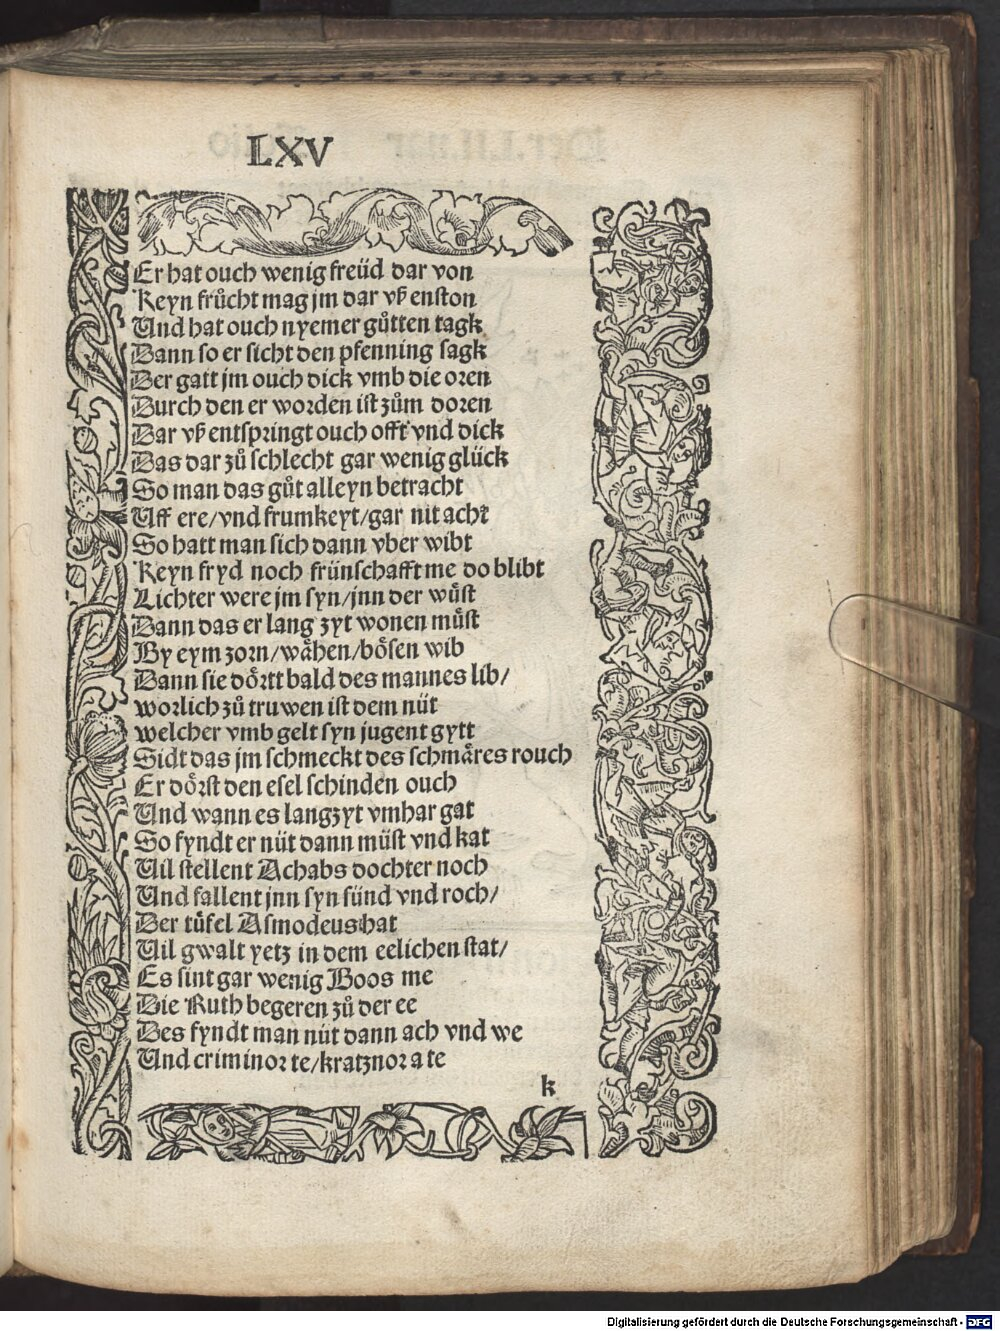 LXV
Er hat ouch wenig freüd dar von
Keyn frůcht mag jm dar vß enston
Und hat ouch nyemer gůtten tagk
Dann so er sicht den pfenning sagk
Der gatt jm ouch dick vmb die oren
Durch den er worden ist zům doren
Dar vß entspringt ouch offt vnd dick
Das dar zů schlecht gar wenig glück
So man das gůt alleyn betracht
Uff ere/vnd frumkeyt/gar nit acht
So hatt man sich dann vber wibt
Keyn fryd noch frünschafft me do blibt
Lichter were jm syn/jnn der wüst
Dann das er lang zyt wonen müst
By eym zorn/wähen/bösen wib
Dann sie dörtt bald des mannes lib/
worlich zů truwen ist dem nüt
welcher vmb gelt syn jugent gytt
Sidt das jm schmeckt des schmäres rouch
Er dörst den esel schinden ouch
Und wann es langzyt vmhar gat
So fyndt er nüt dann müst vnd kat
Uil stellent Achabs dochter noch
Und fallent jnn syn sünd vnd roch/
Der tüfel Asmodeus hat
Uil gwalt yetz in dem eelichen stat/
Es sint gar wenig Boos me
Die Ruth begeren zů der ee
Des fyndt man nüt dann ach vnd we
Und criminor te/kratznor a te
k
Digitalisierung gefördert durch die Deutsche Forschungsgemeinschaft - DFG